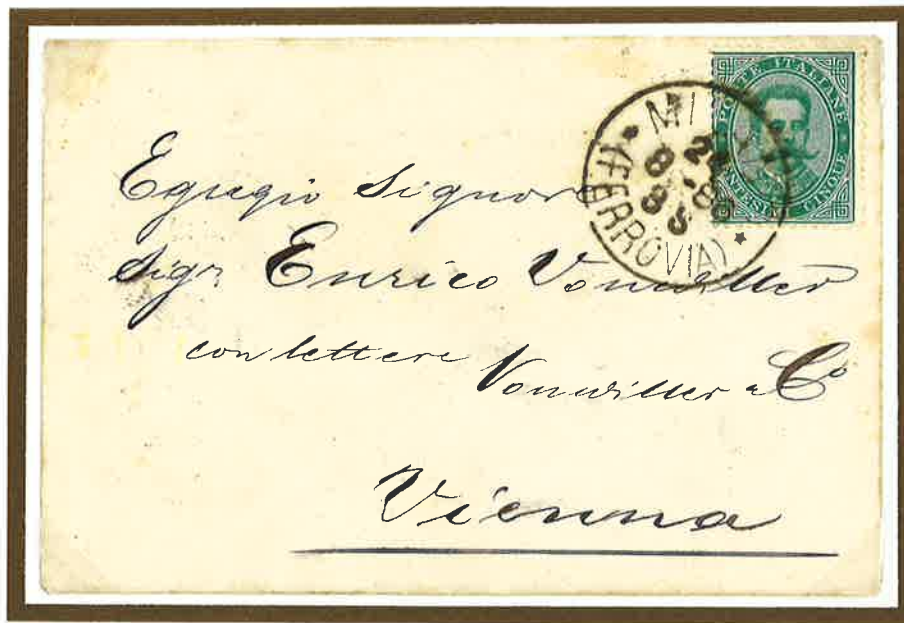 POSTE ITALIANE
CINQUE
MI
(FERROVIA)
Egregio Signore
Sigr Enrico Vonwiller
con lettere
Vonwiller & Co
Vienna